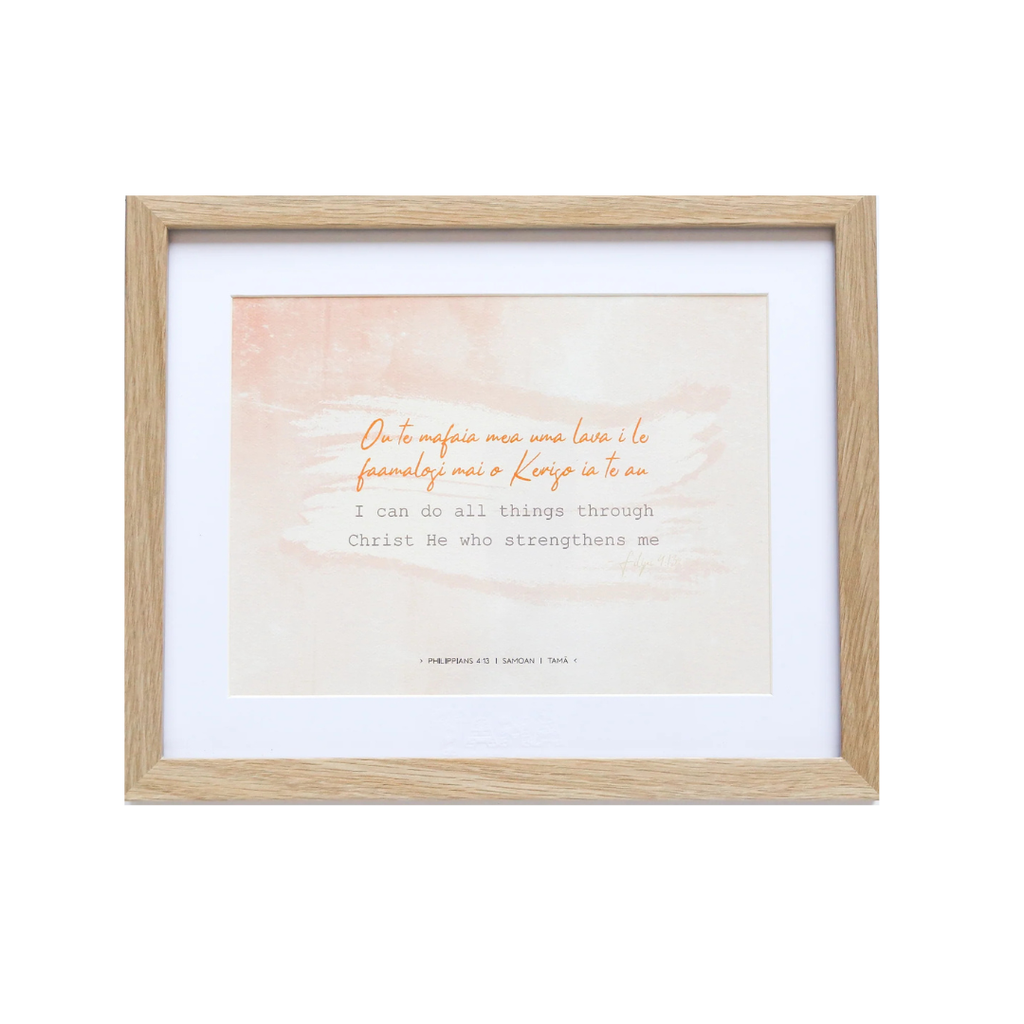 Ou te mafaia mea uma lava i le
faamalosi mai o Keriso ia te au
I can do all things through
Christ He who strengthens me
> PHILIPPIANS 4:13 | SAMOAN | TAMĀ <